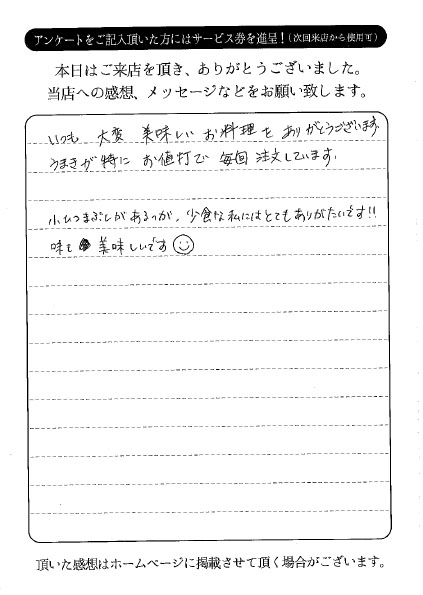 アンケートをご記入頂いた方にはサービス券を進呈！(次回来店から使用可)
本日はご来店を頂き、ありがとうございました。
当店への感想、メッセージなどをお願い致します。
いつも 大変 美味しい お料理を ありがとうございます
うまきが特に お値打で 毎回 注文しています.
小ひつまぶしがあるのが、少食な私にはとてもありがたいです!!
味も 美味しいです
頂いた感想はホームページに掲載させて頂く場合がございます。